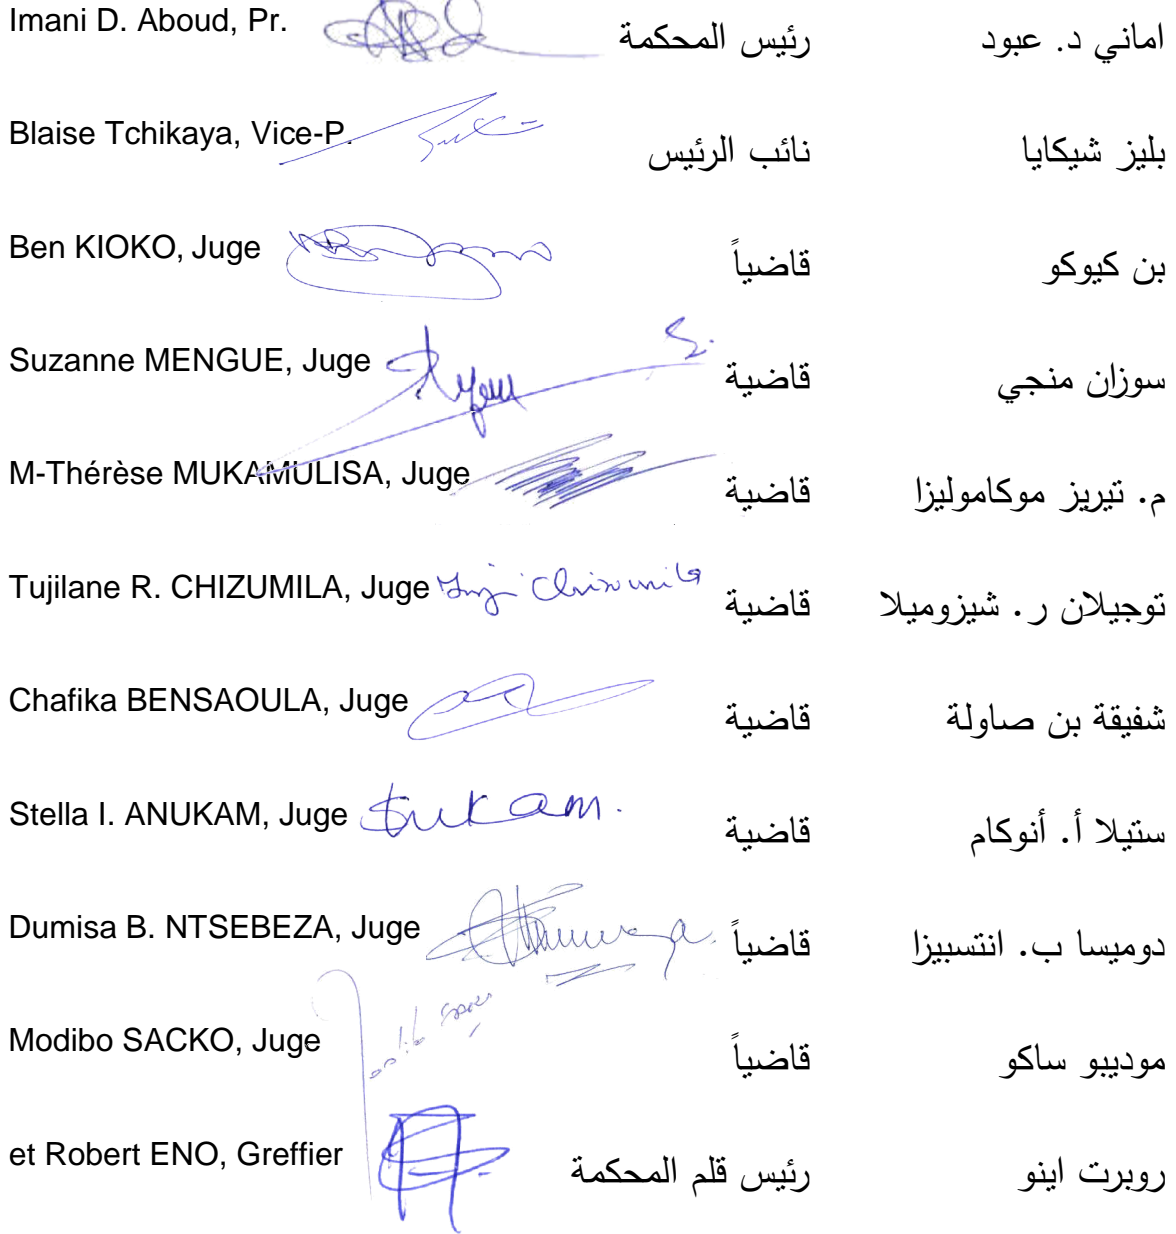 Imani D. Aboud, Pr. رئيس المحكمة اماني د. عبود
Blaise Tchikaya, Vice-P. نائب الرئيس بليز شيكايا
Ben KIOKO, Juge قاضياً بن كيوكو
Suzanne MENGUE, Juge قاضية سوزان منجي
M-Thérèse MUKAMULISA, Juge قاضية م. تيريز موكاموليزا
Tujilane R. CHIZUMILA, Juge قاضية توجيلان ر. شيزوميلا
Chafika BENSAOULA, Juge قاضية شفيقة بن صاولة
Stella I. ANUKAM, Juge قاضية ستيلا أ. أنوكام
Dumisa B. NTSEBEZA, Juge قاضياً دوميسا ب. انتسبيزا
Modibo SACKO, Juge قاضياً موديبو ساكو
et Robert ENO, Greffier رئيس قلم المحكمة روبرت اينو